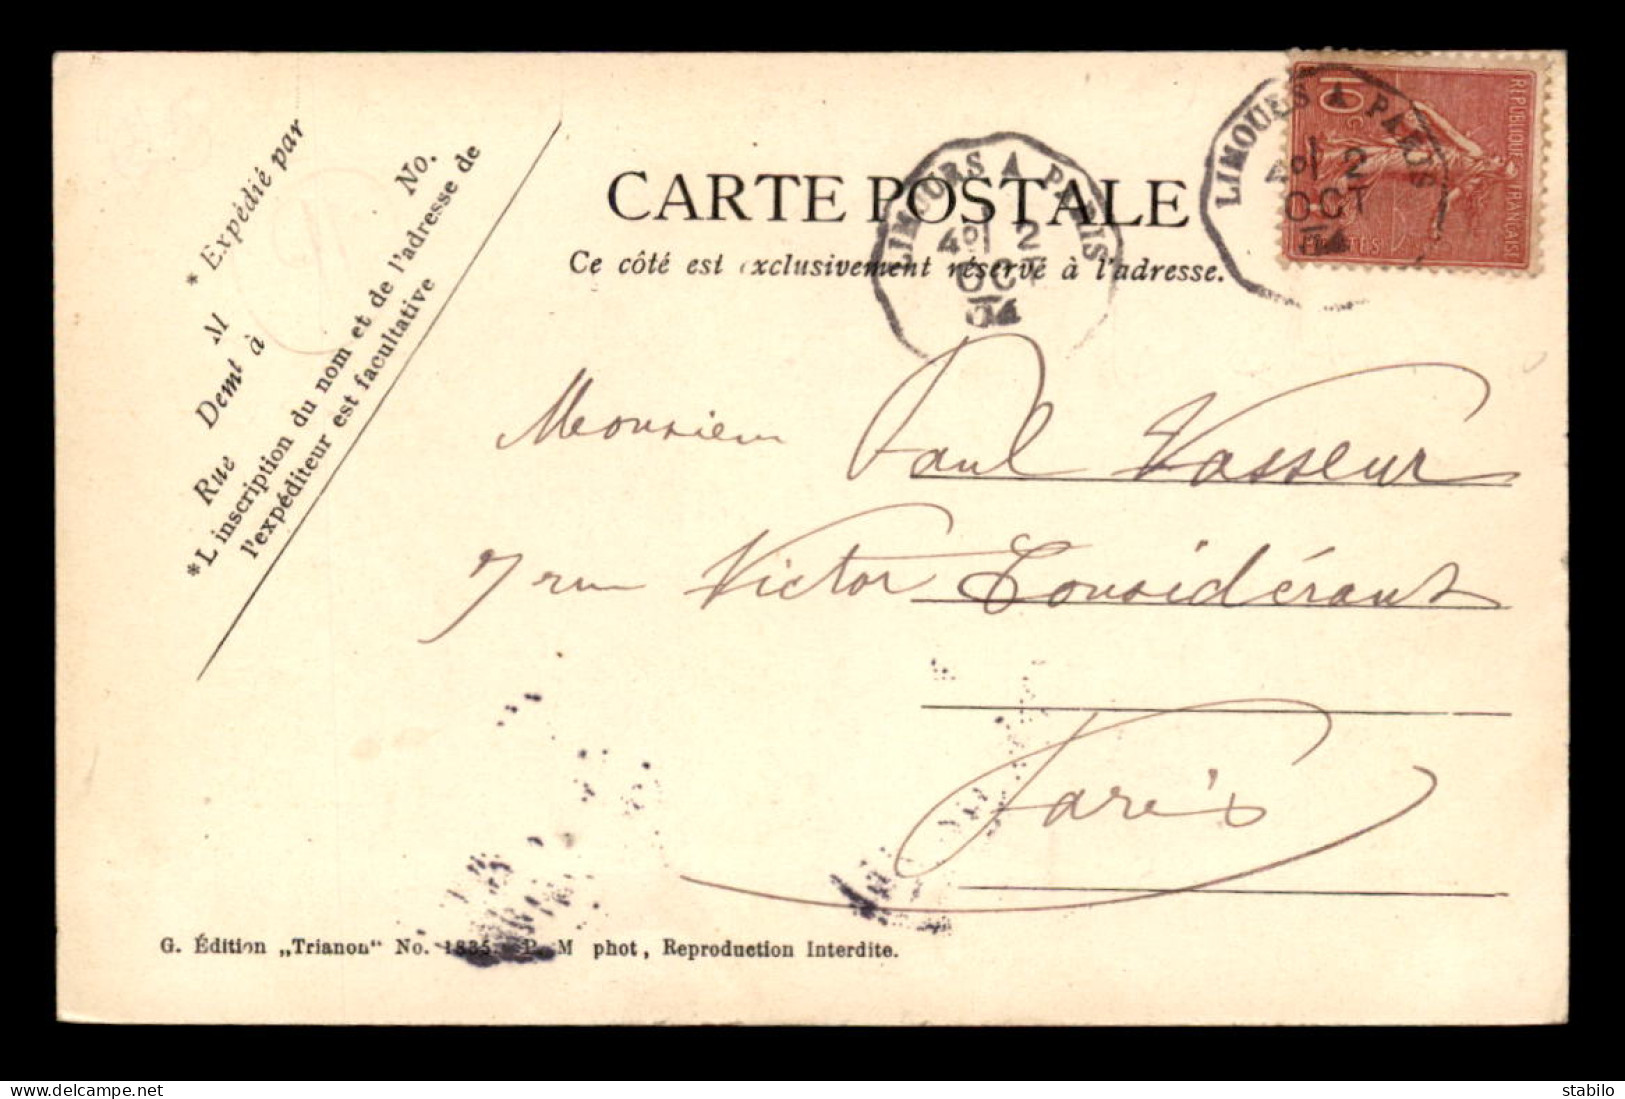 * Expédié par
No.
M
Demt à
Rue
*L inscription du nom et de l'adresse de
l'expéditeur est facultative
CARTE POSTALE
Ce côté est exclusivement réservé à l'adresse.
LIMOURS A PARIS
2
OCT
04
LIMOURS A PARIS
2
OCT
04
10 c
REPUBLIQUE FRANÇAISE
POSTES
Monsieur Paul Vasseur
7 rue Victor Considérant
Paris
G. Édition „Trianon“ No. 1835. P. M phot, Reproduction Interdite.
stabilo